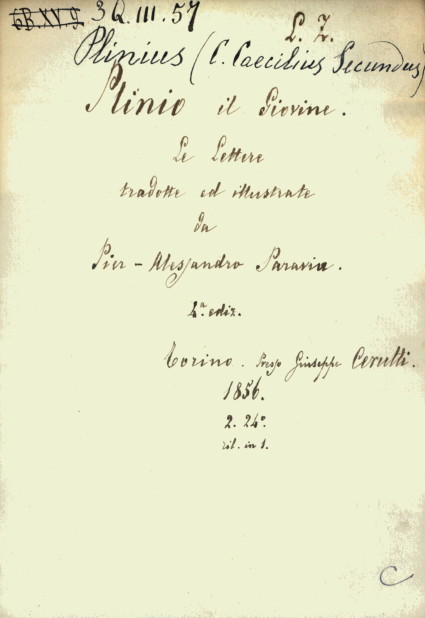 3 Q. III. 57
L. Z.
Plinius (C. Caecilius Secundus)
Plinio il Giovine.
Le Lettere
tradotte ed illustrate
da
Pier-Alessandro Paravia.
4.a ediz.
Torino. Presso Giuseppe Cerutti.
1856.
2. 24o.
ril. in 1.
C